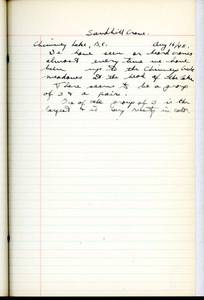 Sandhill Crane.
Chimney Lake, B.C. Aug 16/40.
We have seen or heard cranes
almost every time we have
been up to the Chimney Creek
meadows at the head of the lake.
There seems to be a group
of 3 & a pair.
One of the group of 3 is the
largest & is very rusty in color.